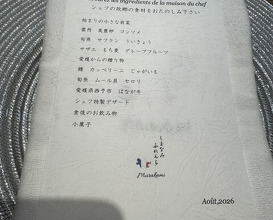 les ingrédients de la maison du chef
シェフの故郷の食材をおたのしみ下さい
始まりの小さな前菜
雲丹 風雲卵 コンソメ
旬魚 サフラン ういきょう
サザエ もち麦 グレープフルーツ
愛媛からの贈り物
鱧 カッペリーニ じゃがいも
旬魚 ムール貝 セロリ
愛媛県西予市 はなが牛
シェフ特製デザート
食後のお飲み物
小菓子
しまなみ
ふれんち
Murakami
Août,2026